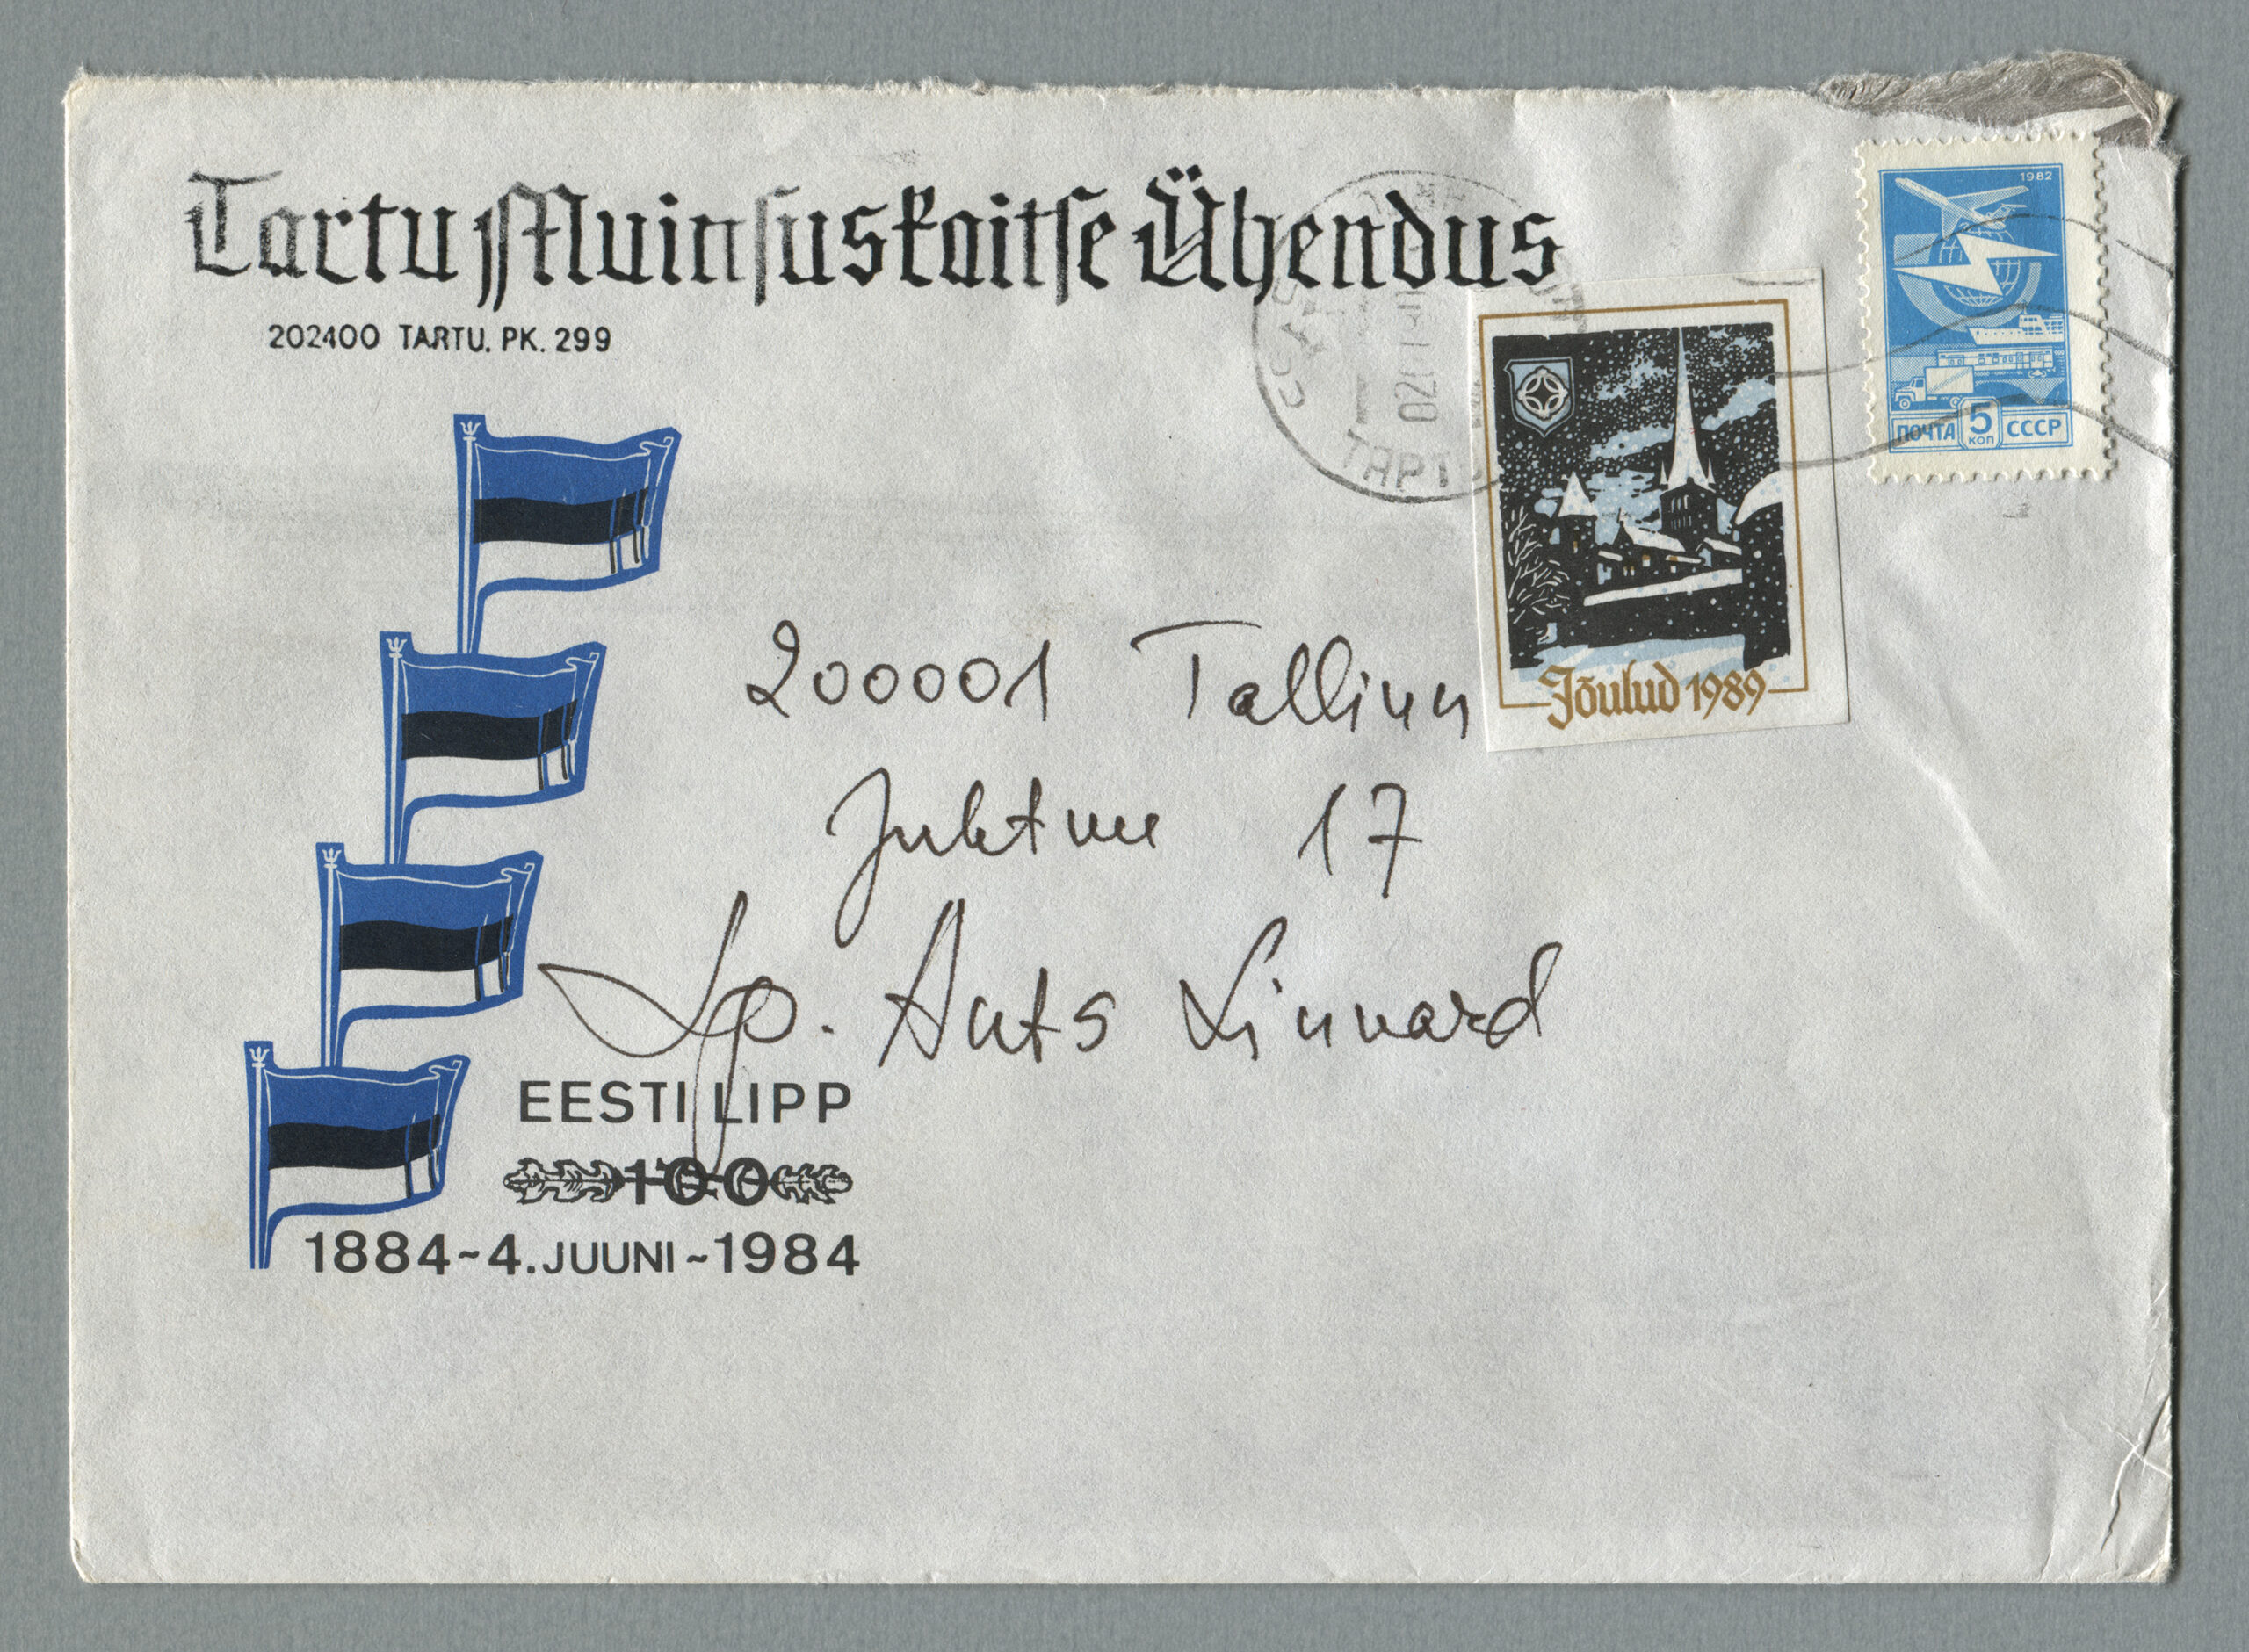 Tartu Muinsuskaitse Ühendus
202400 TARTU. PK. 299
1982
ПОЧТА 5 КОП СССР
ТАРТУ
Jõulud 1989
200001 Tallinn
17
Lp. Ants Linnard
EESTI LIPP
100
1884~4. JUUNI~1984